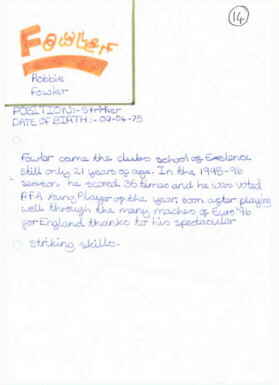 14
Fowler
Robbie
Fowler
POSITION:- Striker
DATE OF BIRTH:- 09-04-75
Fowler came the clubs school of Exelence
still only 21 years of age. In the 1995-96
season he scored 36 times and he was voted
P.F.A Young Player of the year, soon after playing
well through the many maches of Euro '96
for England thanks to his spectacular
striking skills.